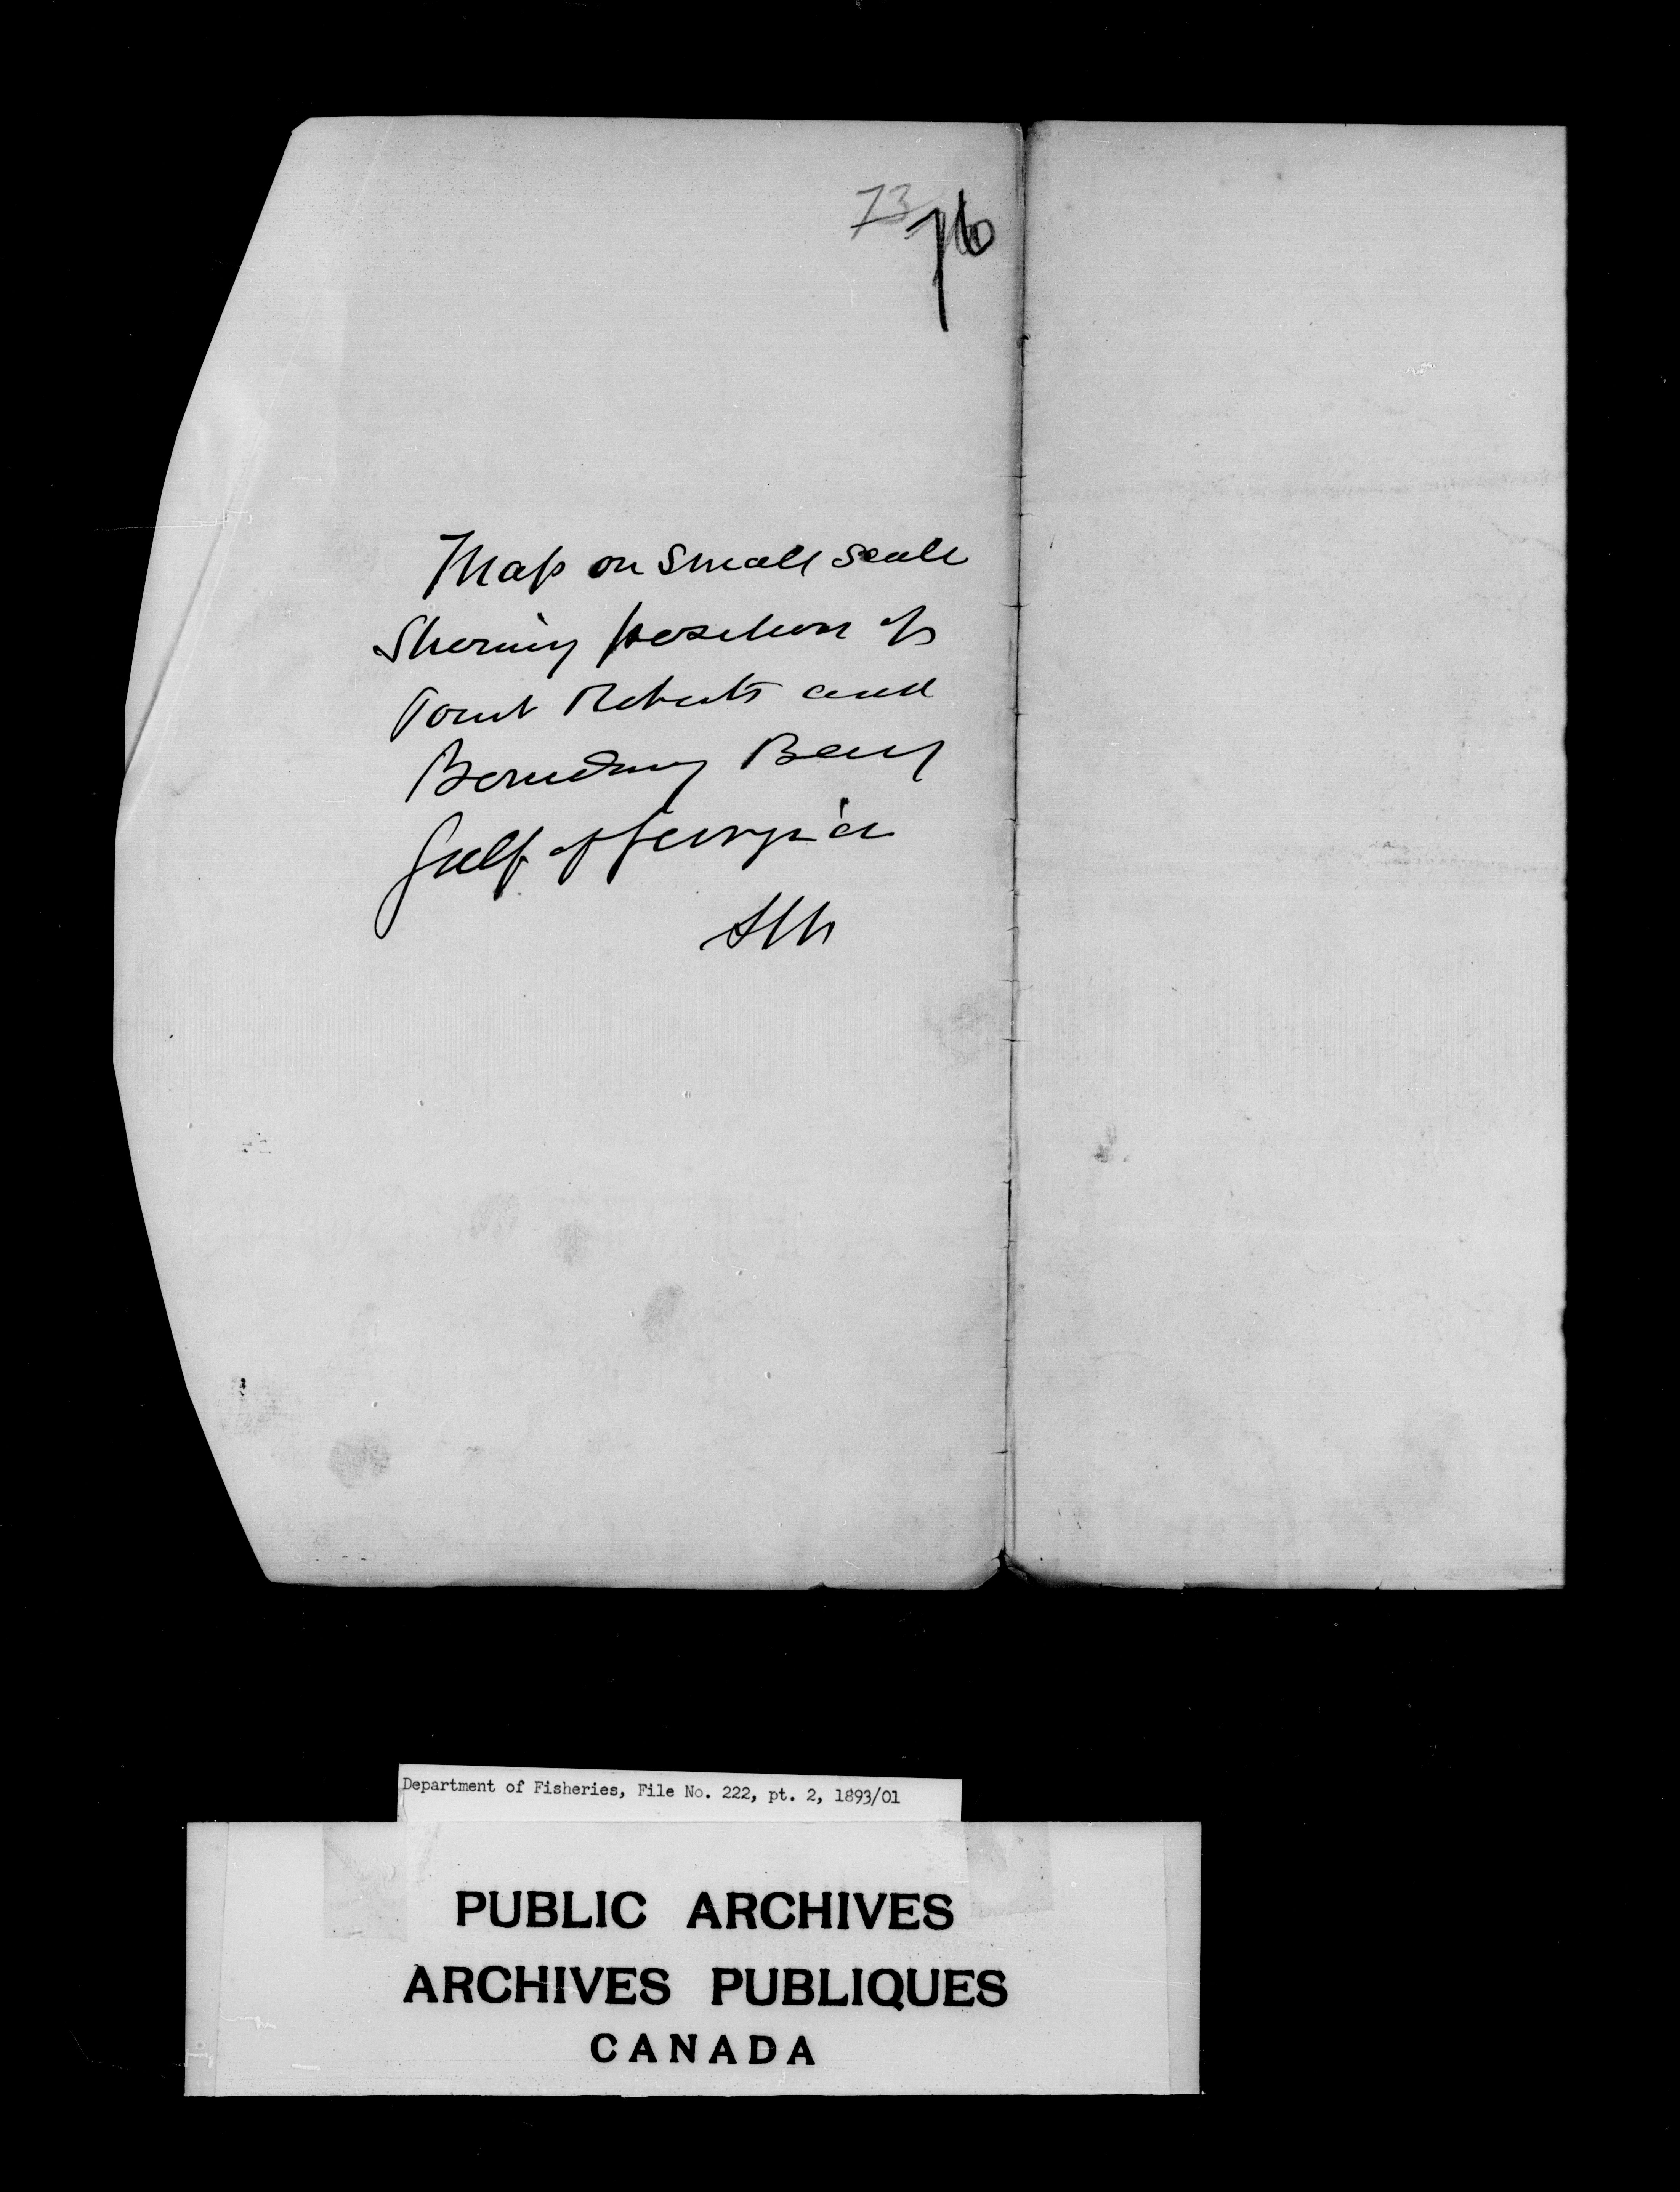 73
76
Map on small scale
Showing position of
Point Roberts and
Boundary Bay
Gulf of Georgia
Department of Fisheries, File No. 222, pt. 2, 1893/01
PUBLIC ARCHIVES
ARCHIVES PUBLIQUES
CANADA